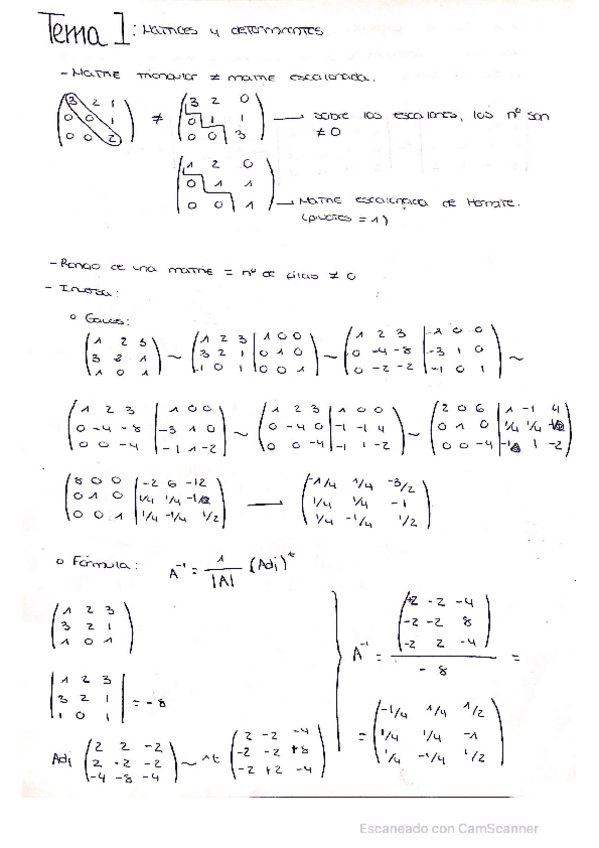 Tema 1: Matrices y determinantes
- Matriz triangular ≠ matriz escalonada.
( 3 2 1 ; 0 0 1 ; 0 0 2 ) ≠ ( 3 2 0 ; 0 1 1 ; 0 0 3 ) → sobre los escalones, los nº son
≠ 0
( 1 2 0 ; 0 1 1 ; 0 0 1 ) → Matriz escalonada de Hermite.
(pivotes = 1)
- Rango de una matriz = nº de filas ≠ 0
- Inversa:
o Gauss:
( 1 2 3 ; 3 2 1 ; 1 0 1 ) ~ ( 1 2 3 | 1 0 0 ; 3 2 1 | 0 1 0 ; 1 0 1 | 0 0 1 ) ~ ( 1 2 3 | 1 0 0 ; 0 -4 -8 | -3 1 0 ; 0 -2 -2 | -1 0 1 ) ~
( 1 2 3 | 1 0 0 ; 0 -4 -8 | -3 1 0 ; 0 0 -4 | -1 1 -2 ) ~ ( 1 2 3 | 1 0 0 ; 0 -4 0 | -1 -1 4 ; 0 0 -4 | -1 1 -2 ) ~ ( 2 0 6 | 1 -1 4 ; 0 1 0 | 1/4 1/4 ; 0 0 -4 | -1 1 -2 )
( 8 0 0 | -2 6 -12 ; 0 1 0 | 1/4 1/4 ; 0 0 1 | 1/4 -1/4 1/2 ) → ( -1/4 1/4 -3/2 ; 1/4 1/4 -1 ; 1/4 -1/4 1/2 )
o Fórmula: A⁻¹ = 1/|A| (Adj)ᵗ
( 1 2 3 ; 3 2 1 ; 1 0 1 )
| 1 2 3 ; 3 2 1 ; 1 0 1 | = -8
Adj ( 2 2 -2 ; 2 -2 -2 ; -4 -8 -4 ) ~ ^t ( 2 -2 -4 ; -2 -2 +8 ; -2 +2 -4 )
A⁻¹ = ( +2 -2 -4 ; -2 -2 8 ; -2 2 -4 ) / -8 =
= ( -1/4 1/4 1/2 ; 1/4 1/4 -1 ; 1/4 -1/4 1/2 )
Escaneado con CamScanner